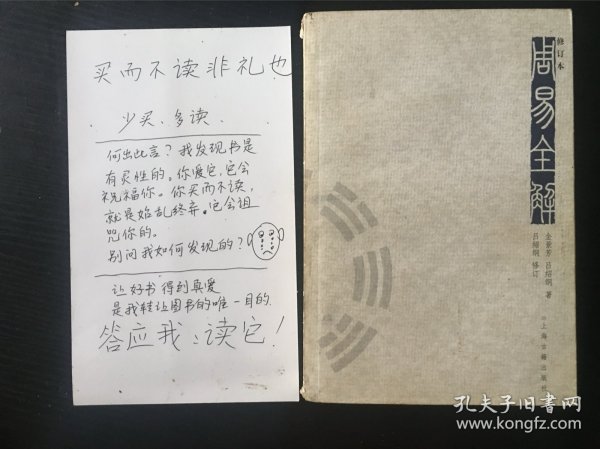 买而不读非礼也
. 少买、多读 .
何出此言？我发现书是
有灵性的。你爱它，它会
祝福你。你买而不读，
就是始乱终弃。它会诅
咒你的。
别问我如何发现的？
让好书得到真爱
是我转让图书的唯一目的.
答应我：读它！
修订本
周易全解
金景芳 吕绍纲 著
吕绍纲 修订
上海古籍出版社
孔夫子旧书网
www.kongfz.com